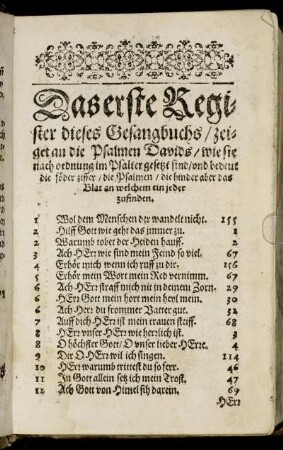 Das erste Regi-
ster dieses Gesangbuchs / zei-
get an die Psalmen Davids / wie sie
nach ordnung im Psalter gesetzt sind / vnd bedeut
die föder ziffer / die Psalmen / die hinder aber das
Blat an welchem ein jeder
zufinden.
1 Wol dem Menschen der wandelt nicht. 155
2 Hilff Gott wie geht das immer zu. 1
2 Warumb tobet der Heiden hauff. 2
3 Ach HErr wie sind mein Feind so viel. 67
4 Erhör mich wenn ich ruff zu dir. 156
5 Erhör mein Wort mein Red vernimm. 67
6 Ach HErr straff mich nit in deinem Zorn. 29
6 HErr Gott mein hort mein heyl mein. 30
6 Ach Herr du frommer Vatter gut. 32
7 Auff dich HErr ist mein trauen steiff. 68
8 HErr vnser HErr wie herrlich ist. 3
8 O höchster Gott / O vnser lieber HErre. 4
9 Dir O HErr wil ich singen. 114
10 HErr warumb trittest du so ferr. 46
11 In Gott allein setz ich mein Trost. 47
12 Ach Gott von Himel sih darein. 69
HErr